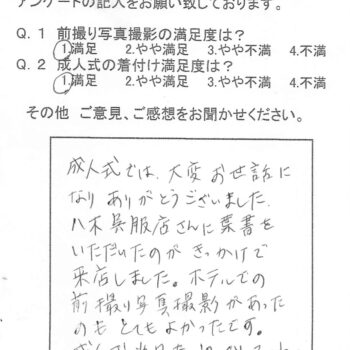 アンケートの記入をお願い致しております。
Q.1 前撮り写真撮影の満足度は?
1.満足 2.やや満足 3.やや不満 4.不満
Q.2 成人式の着付け満足度は?
1.満足 2.やや満足 3.やや不満 4.不満
その他 ご意見、ご感想をお聞かせください。
成人式では、大変お世話に
なりありがとうございました。
八木呉服店さんに葉書を
いただいたのがきっかけで
来店しました。ホテルでの
前撮り写真撮影があった
のもとてもよかったです。